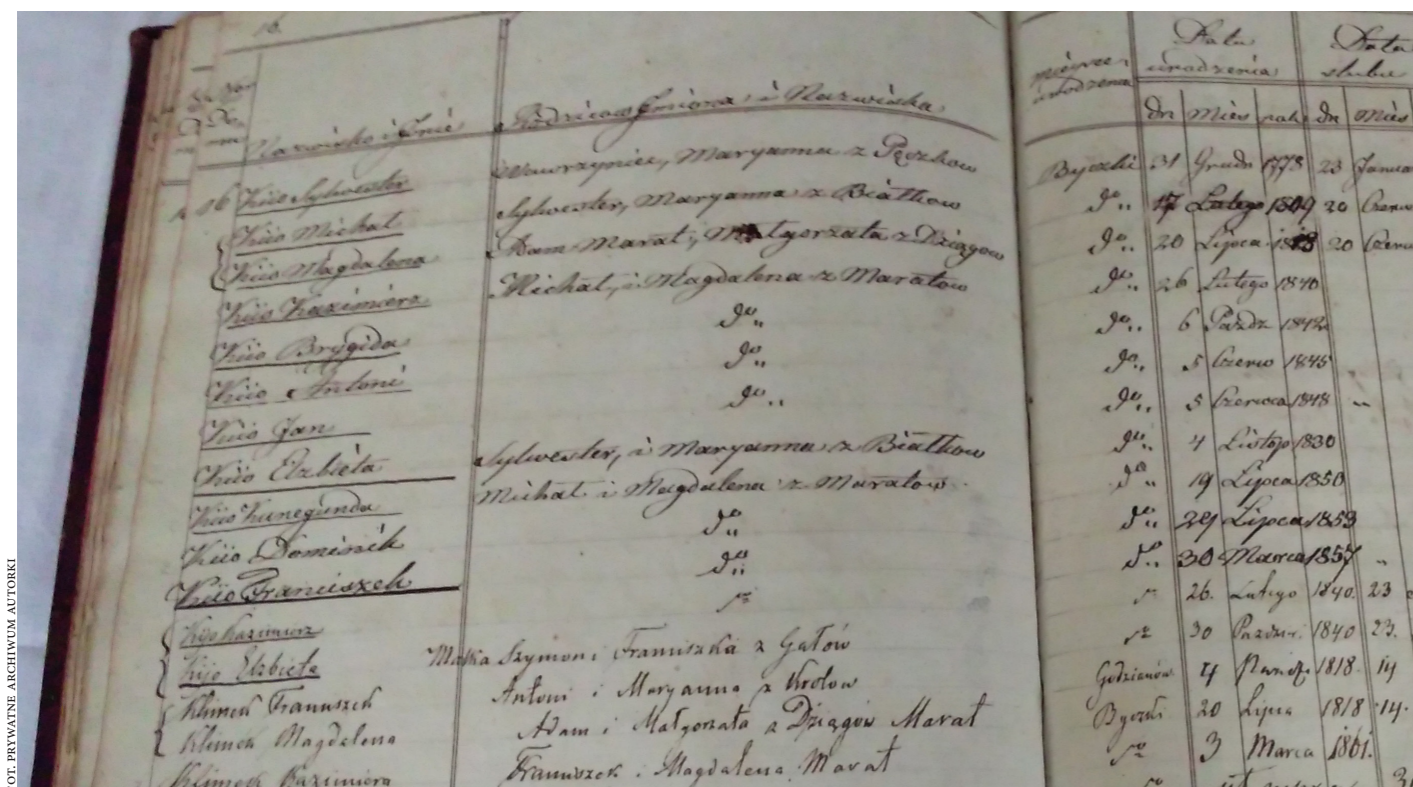 16.
Nazwisko i Imie Rodziców Imiona i Nazwiska miejsce urodzenia Data urodzenia Data slubu
dn Mies rok dn Mies
16 Kijo Sylwester Wawrzyniec, Maryanna z Pęczkow Byczki 31 Grud 1778 23
Kijo Michał Sylwester, Maryanna z Białkow do 17 Lutego 1809 20 Czerw
Kijo Magdalena Adam Marat, Małgorzata z Dziągow do 20 Lipca 20 Czerw
Kijo Kazimierz Michał, i Magdalena z Maratow do 26 Lutego 1840
Kijo Brygida do do 6 Pazdz 1842
Kijo Antoni do do 5 Czerw 1845
Kijo Jan do do 5 Czerwca 1848
Kijo Elzbieta Sylwester, i Maryanna z Białkow do 4 Listop 1830
Kijo Kunegunda Michał i Magdalena z Maratow do 19 Lipca 1850
Kijo Dominik do do 29 Lipca 1853
Kijo Franciszek do do 30 Marca 1857
Kijo Kazimierz 26. Lutego 1840. 23
Kijo Elzbieta Matka Szymon i Franciszka z Gałów 30 Pazdzi. 1840 23.
Klimek Franciszek Antoni i Maryanna z Krolow Godzianów 4 1818. 14
Klimek Magdalena Adam i Małgorzata z Dziągów Marat Byczki 20 Lipca 1818 14.
Klimek Kazimiera Franciszek i Magdalena Marat 3 Marca 1861.
FOT. PRYWATNE ARCHIWUM AUTORKI